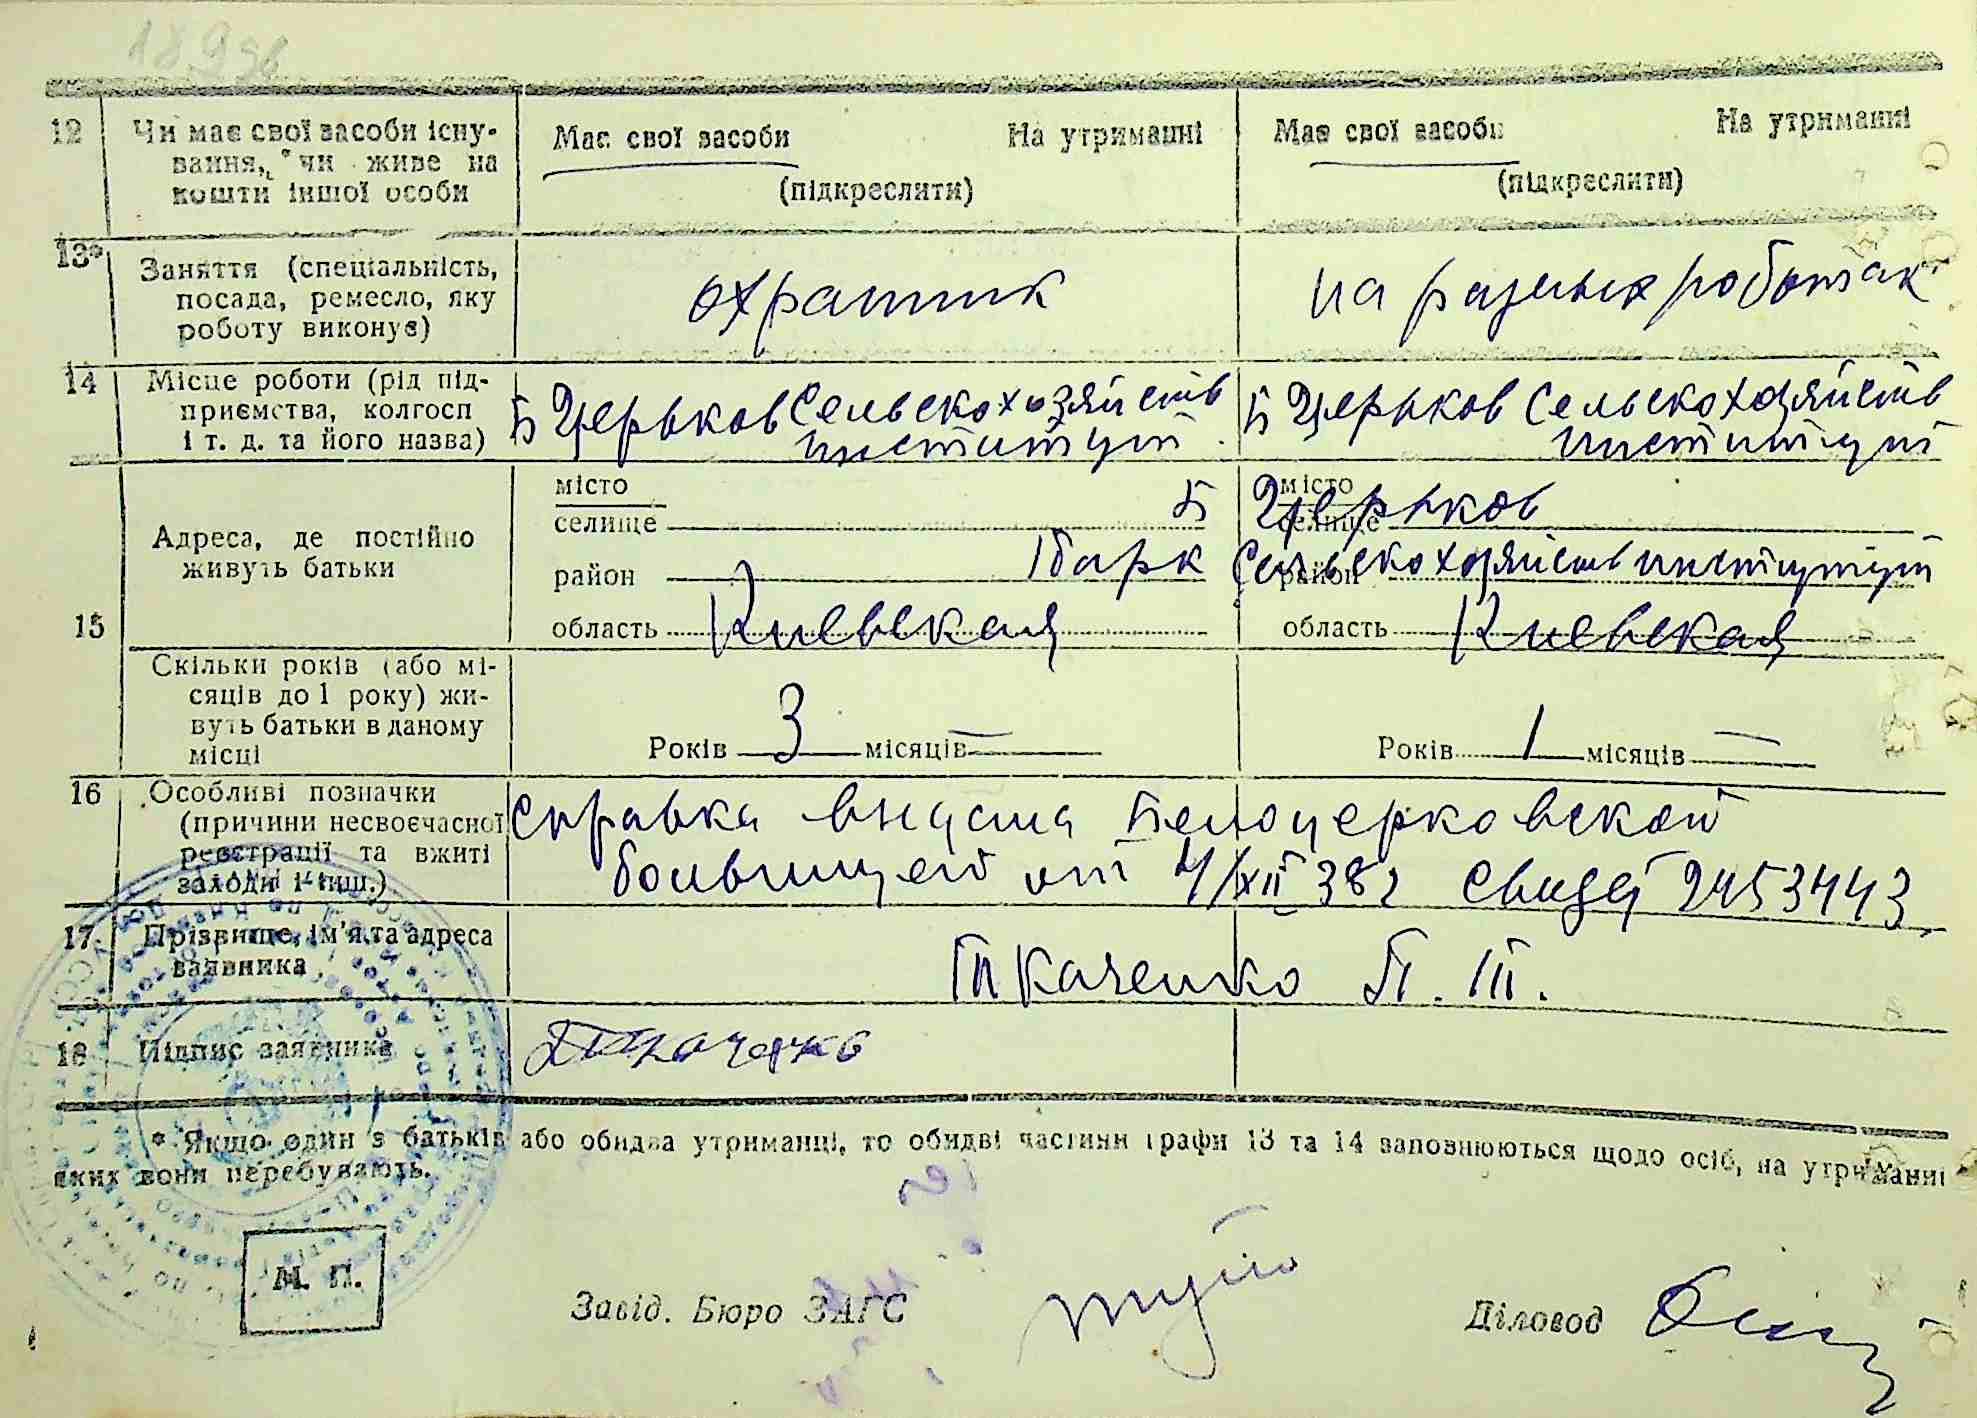 12 Чи має свої засоби існу-
вання, чи живе на
кошти іншої особи
Має свої засоби На утриманні
(підкреслити)
Має свої засоби На утриманні
(підкреслити)
13* Заняття (спеціальність,
посада, ремесло, яку
роботу виконує)
охранник
на разных роботах
14 Місце роботи (рід під-
приємства, колгосп
і т. д. та його назва)
Б Церьков Сельскохозяйств
институт
Б Церьков Сельскохозяйств
институт
15 Адреса, де постійно
живуть батьки
місто
селище
район
область Киевская
місто
селище
район
область Киевская
Б Церьков
парк Сельскохозяйств институт
Скільки років (або мі-
сяців до 1 року) жи-
вуть батьки в даному
місці
Років 3 місяців —
Років 1 місяців —
16 Особливі позначки
(причини несвоєчасної
реєстрації та вжиті
заходи і інш.)
Справка выдана Белоцерковской
больницей от 4/XII 38г Свидет 2453443
17 Прізвище, ім'я та адреса
заявника
Ткаченко П. Т.
18 Підпис заявника
Ткаченко
* Якщо один з батьків або обидва утриманці, то обидві частини графи 13 та 14 заповнюються щодо осіб, на утриманні
яких вони перебувають.
М. П.
Завід. Бюро ЗАГС
Діловод